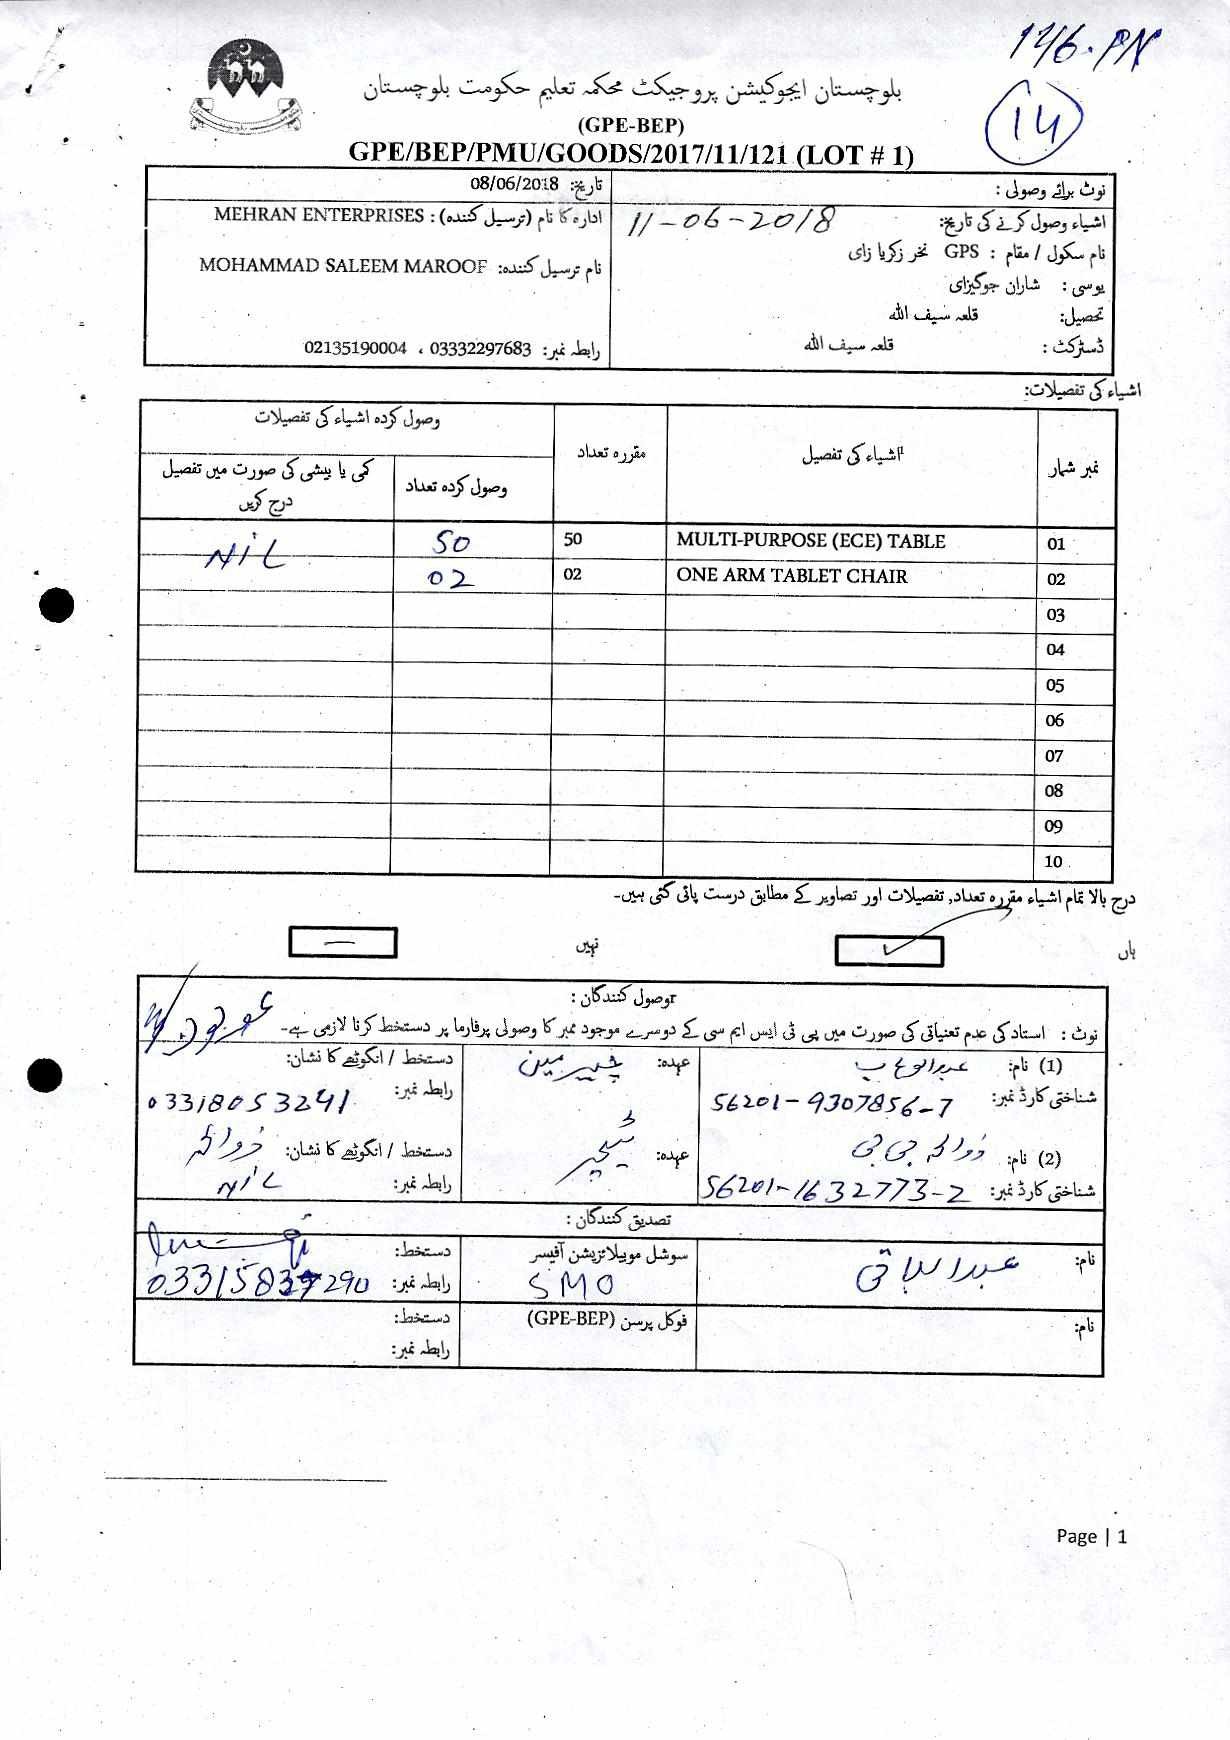 146-PN
14
بلوچستان ایجوکیشن پروجیکٹ محکمہ تعلیم حکومت بلوچستان
(GPE-BEP)
GPE/BEP/PMU/GOODS/2017/11/121 (LOT # 1)
نوٹ برائے وصولی :
تاریخ: 08/06/2018
اشیاء وصول کرنے کی تاریخ: 11-06-2018
ادارہ کا نام (ترسیل کنندہ) : MEHRAN ENTERPRISES
نام سکول / مقام : GPS نخر زکریا زای
نام ترسیل کنندہ: MOHAMMAD SALEEM MAROOF
یوسی : شاران جوگیزای
تحصیل: قلعہ سیف اللہ
ڈسٹرکٹ : قلعہ سیف اللہ
رابطہ نمبر: 03332297683 ، 02135190004
اشیاء کی تفصیلات:
نمبر شمار
اشیاء کی تفصیل
مقررہ تعداد
وصول کردہ اشیاء کی تفصیلات
وصول کردہ تعداد
کمی یا بیشی کی صورت میں تفصیل درج کریں
01 MULTI-PURPOSE (ECE) TABLE 50 50 NIL
02 ONE ARM TABLET CHAIR 02 02
03
04
05
06
07
08
09
10
درج بالا تمام اشیاء مقررہ تعداد, تفصیلات اور تصاویر کے مطابق درست پائی گئی ہیں۔
ہاں
نہیں
وصول کنندگان :
نوٹ : استاد کی عدم تعنیاتی کی صورت میں پی ٹی ایس ایم سی کے دوسرے موجود ممبر کا وصولی پرفارما پر دستخط کرنا لازمی ہے۔
(1) نام: عبدالوہاب
عہدہ: چیرمین
دستخط / انگوٹھے کا نشان:
شناختی کارڈ نمبر: 56201-9307856-7
رابطہ نمبر: 03318053241
(2) نام:
عہدہ: ٹیچر
دستخط / انگوٹھے کا نشان:
شناختی کارڈ نمبر: 56201-1632773-2
رابطہ نمبر: NIL
تصدیق کنندگان :
نام: عبدالباقی
سوشل موبیلائزیشن آفیسر
SMO
دستخط:
رابطہ نمبر:
نام:
فوکل پرسن (GPE-BEP)
دستخط:
رابطہ نمبر:
Page | 1